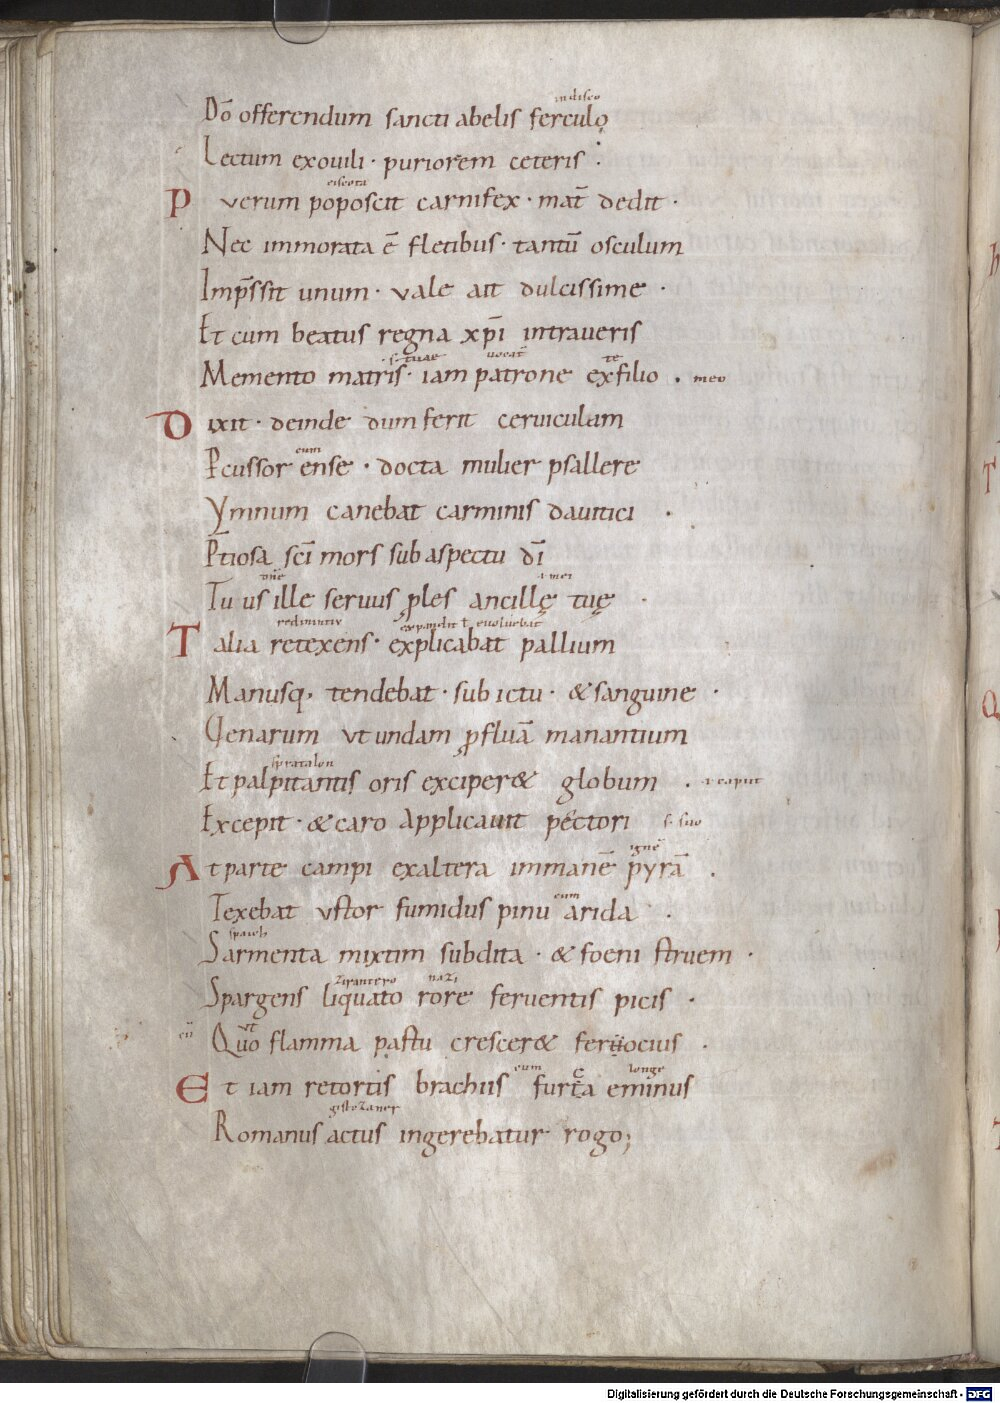 in disco
Dō offerendum sancti abelis ferculo
Lectum exouili · puriorem ceteris :
eiscota
P verum poposcit carnifex · mat̄ dedit ·
Nec immorata ē fletibus · tantū osculum
Imp̄ssit unum · vale ait dulcissime ·
Et cum beatus regna xp̄i intraueris
·s· tuae uocat te
Memento matris · iam patrone exfilio · meo
Dixit · deinde dum ferit ceruiculam
eum
P̄cussor ense · docta mulier psallere
Ymnum canebat carminis dauitici ·
P̄tiosa sc̄i mors sub aspectu dī
dn̄e i mei
Tuus ille seruus ꝓles ancillę tuę ·
redimitiv expandit ł euoluebat
Talia retexens · explicabat pallium
Manusq, tendebat · sub ictu · &sanguine ·
Uenarum vt undam ꝓfluā manantium
spratalon
Et palpitantis oris exciper& globum · i caput
Excepit · &caro applicauit pectori s· suo
ignē
At parte campi exaltera immanē pyrā ·
eum
Texebat vstor fumidus pinu arida ·
spraid
Sarmenta mixtim subdita · & foeni struem ·
nazi
Spargens liquato rore feruentis picis ·
vt
Quo flamma pastu crescer& feruocius ·
eum longe
Et iam retortis brachiis furca eminus
Romanus actus ingerebatur rogo;
Digitalisierung gefördert durch die Deutsche Forschungsgemeinschaft - DFG